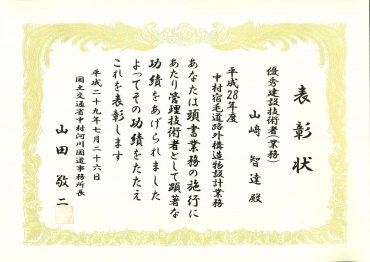 表彰状
優秀建設技術者(業務)
山﨑 智達 殿
平成28年度
中村宿毛道路外構造物設計業務
あなたは頭書業務の施行に
あたり管理技術者として顕著な
功績をあげられました
よってその功績をたたえ
これを表彰します
平成二十九年七月二十六日
国土交通省中村河川国道事務所長
山田 敬二